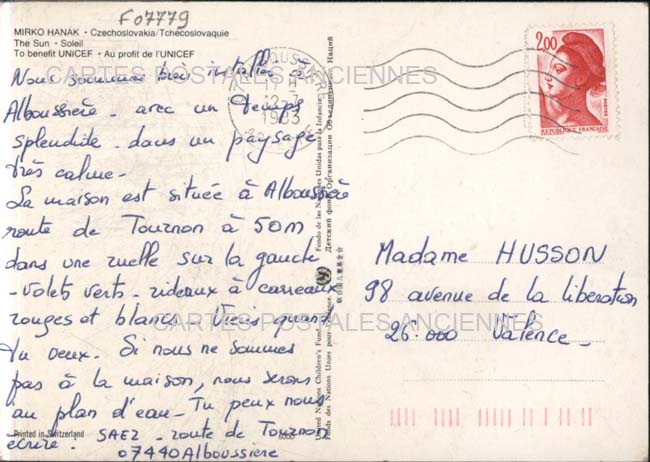 F07779
MIRKO HANAK • Czechoslovakia/Tchecoslovaquie
The Sun • Soleil
To benefit UNICEF • Au profit de l'UNICEF
Nous sommes bien installés à
Alboussière - avec un temps
splendide - dans un paysage
très calme -
La maison est située à Alboussière
route de Tournon à 50m
dans une ruelle sur la gauche
- volets verts - rideaux à carreaux
rouges et blancs - Viens quand
tu veux - Si nous ne sommes
pas à la maison, nous serons
au plan d'eau - Tu peux nous
écrire - SAEZ - route de Tournon
07440 Alboussiere
Printed in Switzerland
United Nations Children's Fund
Fondo de las Naciones Unidas para la Infancia
Детский фонд Организации Объединенных Наций
联合国儿童基金会
17 H
12 - 7
1983
2,00
POSTES
REPUBLIQUE FRANÇAISE
Madame HUSSON
98 avenue de la libération
26000 Valence -
CARTES POSTALES ANCIENNES
CARTES POSTALES ANCIENNES